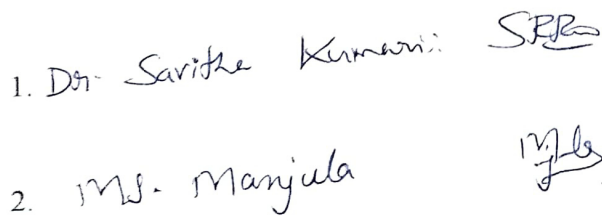 1. Dr. Savitha Kumari:
2. Ms. Manjula